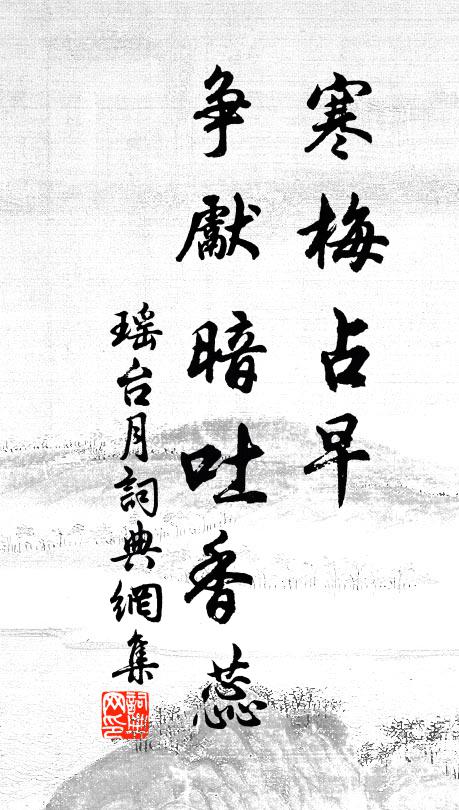 寒梅占早
争獻暗吐香蕊
瑶台月詞典網集